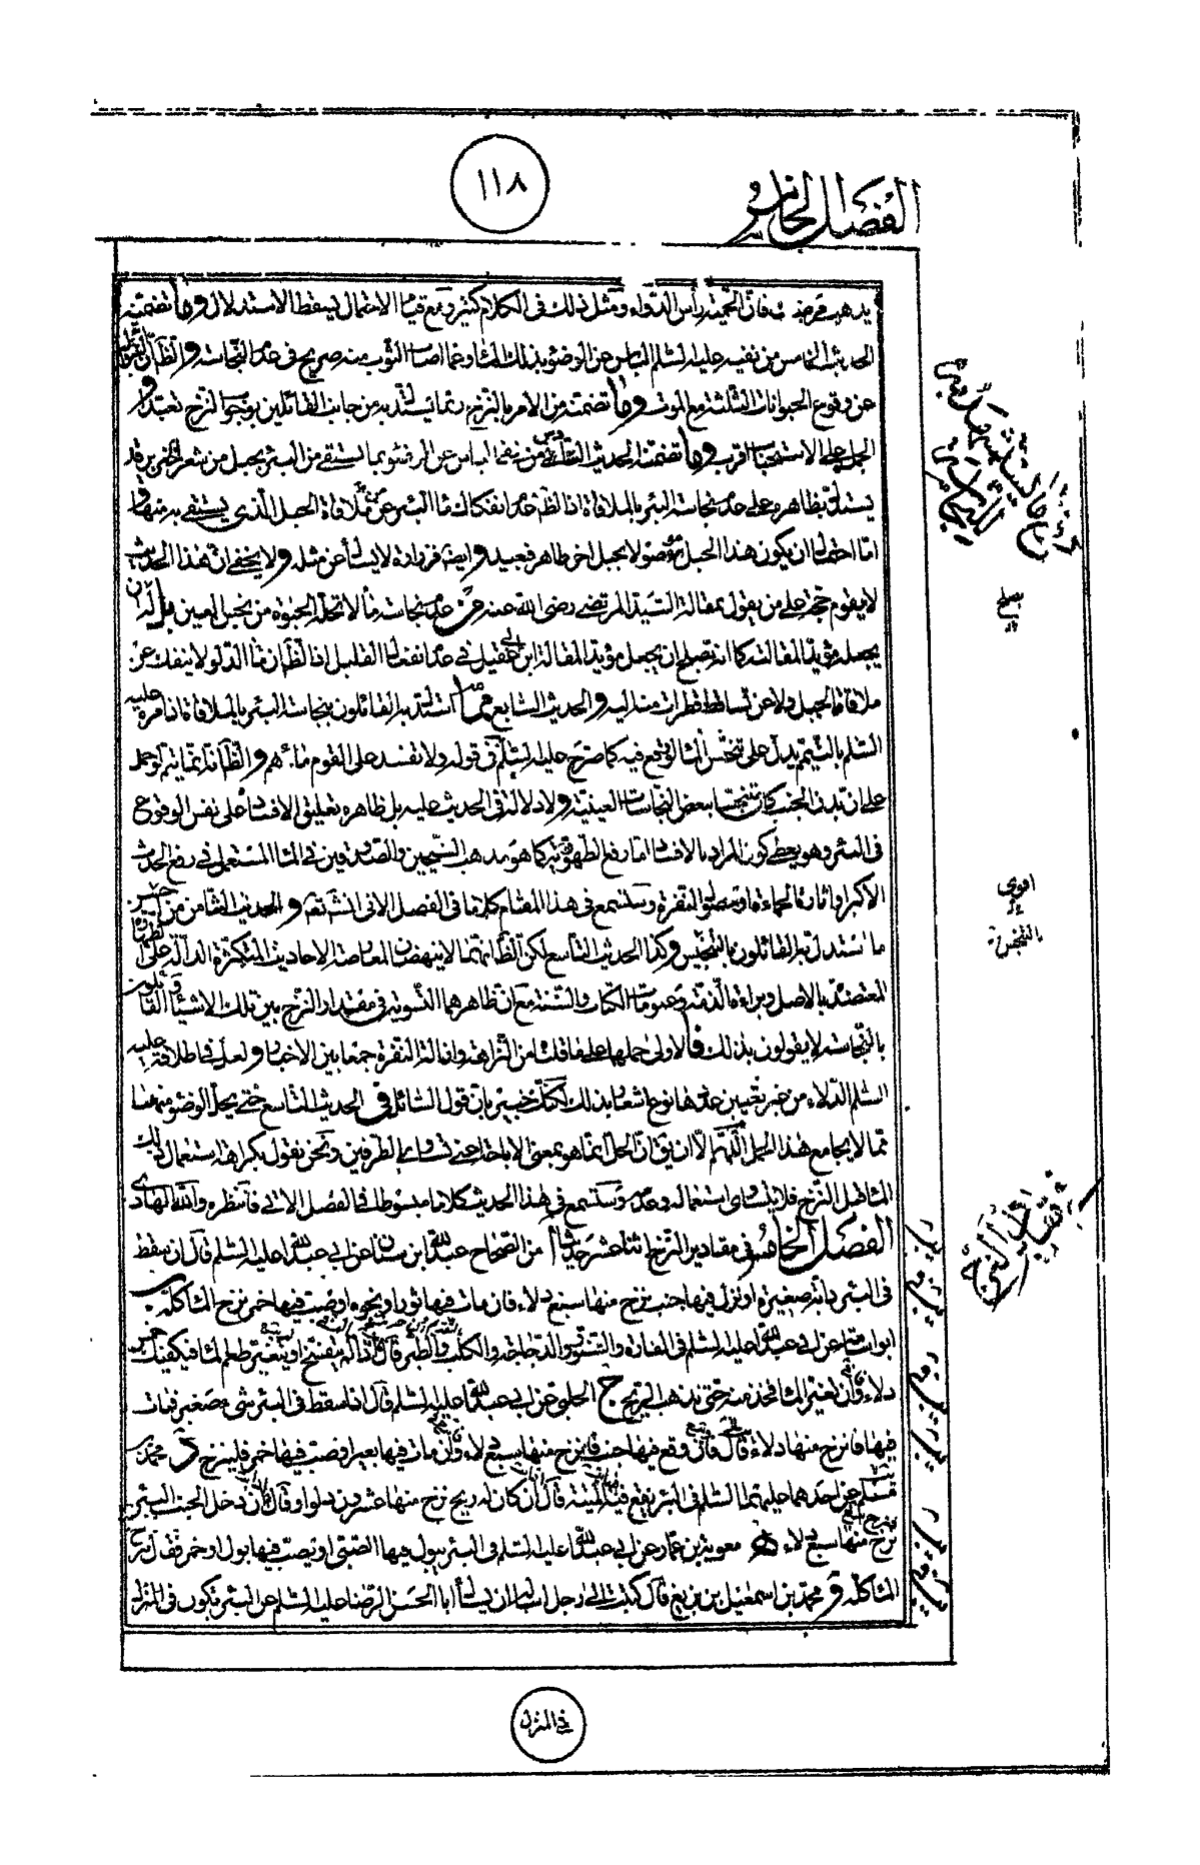 ١١٨
الفصل الخامس
يذهب مرضك فان الحمية رأس الدواء ومثل ذلك في الكلام كثير ومع قيام الاحتمال يسقط الاستدلال وما تضمنته
الحديث الخامس من نفيه عليه السلم الباس عن الوضوء بذلك الماء وعما اصاب الثوب منه صريح في عدم النجاسة والظاهر ان
عن وقوع الحيوانات الثلثة مع الموت وما تضمنته من الامر بالنزح ربما يستدل به من جانب القائلين بوجوب النزح تعبدا و
الحمل على الاستحباب اقرب وما تضمنه الحديث السادس من نفي الباس عن الوضوء بما يستقى من البئر بحبل من شعر الخنزير قد
يستدل بظاهره على عدم نجاسة البئر بالملاقاة اذ الظاهر عدم انفكاك ماء البئر عن ملاقاة الحبل الذي يستقى به منها و
اما احتمال ان يكون هذا الحبل موصولا بحبل اخر طاهر فبعيد وايضا فزرارة لا يسأل عن مثله ولا يخفى ان هذا الحديث
لا يقوم حجة على من يقول بمقالة السيد المرتضى رضي الله عنه من عدم نجاسة ما لا تحله الحيوة من نجس العين بل له ان
يجعله مؤيدا لمقالته كما انه يصلح ان يجعل مؤيدا لمقالة ابن ابي عقيل في عدم انفعال القليل اذ الظاهر ان ماء الدلو لا ينفك عن
ملاقاة الحبل ولا عن تساقط قطرات منه اليه والحديث السابع مما استدل به القائلون بنجاسة البئر بالملاقاة فامره عليه
السلم بالتيمم يدل على تنجس الماء لو وقع فيه كما صرح عليه السلم في قوله ولا تفسد على القوم ماءهم والظاهر انه انما يتم لو حمل
على ان بدن الجنب كان متنجسا ببعض النجاسات العينية ولا دلالة في الحديث عليه بل ظاهره تعليق الافساد على نفس الوقوع
في البئر وهو يعطي كون المراد بالافساد اما رفع الطهورية كما هو مذهب الشيخين والصدوقين في الماء المستعمل في رفع الحدث
الاكبر او اثارة الحماة او حصول النفرة وستسمع في هذا المقام كلاما في الفصل الاتي انشاءالله تعم والحديث الثامن من
ما استدل به القائلون بالتنجيس وكذا الحديث التاسع لكن الظاهر انهما لا ينهضان لمعارضة الاحاديث المتكثرة الدالة على الطهارة
المعتضدة بالاصل وبراءة الذمة وعمومات الكتاب والسنة مع ان ظاهرهما التسوية في مقدار النزح بين تلك الاشياء والقائلون
بالنجاسة لا يقولون بذلك فالاولى حملها على ما قلنا من النزاهة وازالة النفرة جمعا بين الاخبار ولعل في اطلاقه عليه
السلم الدلاء من غير تعيين عددها نوع اشعار بذلك لكنك خبير بان قول السائل في الحديث التاسع حتى يحل الوضوء منها
مما لا يجامع هذا الحمل اللهم الا ان يق ان الحل انما هو بمعنى الاباحة اعني تساوي الطرفين ونحن نقول بكراهة استعمال ذلك
الماء قبل النزح فلا يتساوى استعماله وعدمه وستسمع في هذا الحديث كلاما مبسوطا في الفصل الاتي فانتظره والله الهادي
الفصل الخامس في مقادير النزح اثنا عشر حديثا ا من الصحاح عبد الله ابن سنان عن ابي عبد الله عليه السلم قال ان سقط
في البئر دابة صغيرة او نزل فيها جنب نزح منها سبع دلاء فان مات فيها ثور او نحوه او صب فيها خمر نزح الماء كله ب
ابو اسامة عن ابي عبد الله عليه السلم في الفارة والسنور والدجاجة والكلب والطير قال اذا لم يتفسخ او يتغير طعم الماء فيكفيك خمس
دلاء وان تغير الماء فخذ منه حتى يذهب الريح ج الحلبي عن ابي عبد الله عليه السلم قال اذا سقط في البئر شيء صغير فمات
فيها فانزح منها دلاء قال فان وقع فيها جنب فانزح منها سبع دلاء وان مات فيها بعير او صب فيها خمر فلينزح د محمد بن
مسلم عن احدهما عليهما السلم في البئر يقع فيها الميتة قال ان كان له ريح نزح منها عشرون دلوا وقال ان دخل الجنب البئر
نزح منها سبع دلاء ه معوية بن عمار عن ابي عبد الله عليه السلم في البئر يبول فيها الصبي او يصب فيها بول او خمر فقال ينزح
الماء كله و محمد بن اسمعيل بن بزيع قال كتبت الى رجل اساله ان يسأل ابا الحسن الرضا عليه السلم عن البئر تكون في المنزل
في المنزل